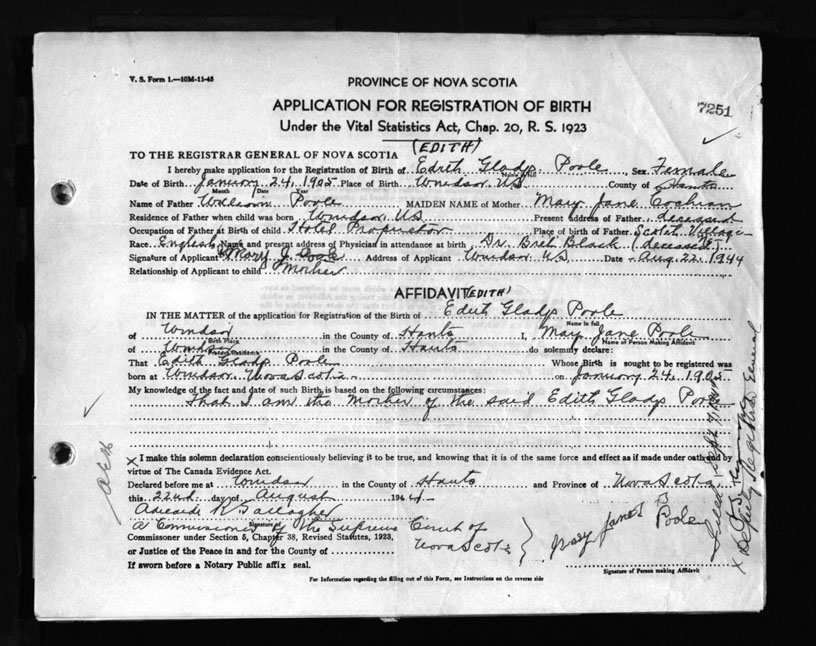 V. S. Form 1.—10M-11-43
PROVINCE OF NOVA SCOTIA
APPLICATION FOR REGISTRATION OF BIRTH
7251
Under the Vital Statistics Act, Chap. 20, R. S. 1923
(EDITH)
TO THE REGISTRAR GENERAL OF NOVA SCOTIA
I hereby make application for the Registration of Birth of Edith Gladys Poole, Sex Female
Date of Birth January 24, 1905 Place of Birth Windsor N.S. County of Hants
Month Date Year
Name of Father William Poole MAIDEN NAME of Mother Mary Jane Cochran
Residence of Father when child was born Windsor N.S. Present address of Father deceased
Occupation of Father at Birth of child Hotel Proprietor Place of birth of Father Scotch Village
Race English Name and present address of Physician in attendance at birth Dr. Black (deceased)
Signature of Applicant Mary J. Poole Address of Applicant Windsor N.S. Date Aug 22, 1944
Relationship of Applicant to child Mother
AFFIDAVIT (EDITH)
IN THE MATTER of the application for Registration of the Birth of Edith Gladys Poole
Name in full
of Windsor in the County of Hants I, Mary Jane Poole
Birth Place Name of Person Making Affidavit
of Windsor in the County of Hants do solemnly declare:
Present Residence
That Edith Gladys Poole Whose Birth is sought to be registered was
born at Windsor Nova Scotia on January 24, 1905
My knowledge of the fact and date of such Birth is based on the following circumstances:
That I am the Mother of the said Edith Gladys Poole
X I make this solemn declaration conscientiously believing it to be true, and knowing that it is of the same force and effect as if made under oath and by
virtue of The Canada Evidence Act.
Declared before me at Windsor in the County of Hants and Province of Nova Scotia
this 22nd day of August 1944
Adelaide Gallagher
A Commissioner of the Supreme Court of
Signature of
Commissioner under Section 5, Chapter 38, Revised Statutes, 1923, Nova Scotia
Mary Jane Poole
or Justice of the Peace in and for the County of
If sworn before a Notary Public affix seal.
Signature of Person making Affidavit
For Information regarding the filling out of this Form, see Instructions on the reverse side
Filed Sept
X Deputy Registrar General